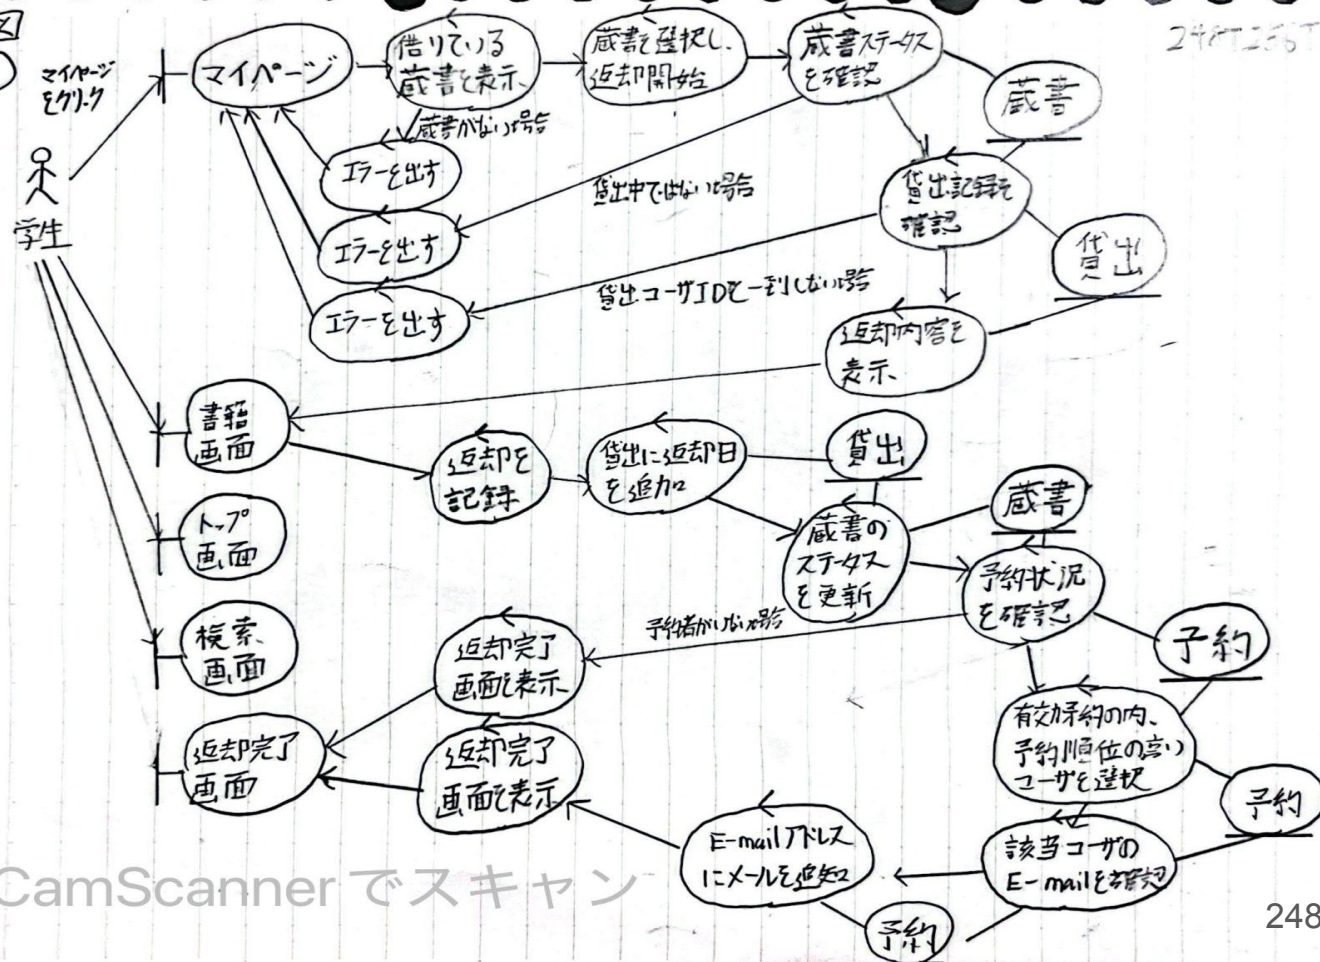 マイページ
をクリック
学生
マイページ
借りている
蔵書を表示
蔵書を選択し、
返却開始
蔵書ステータス
を確認
蔵書
蔵書がない場合
エラーを出す
貸出中ではない場合
エラーを出す
貸出記録を
確認
貸出
貸出ユーザIDを一致しない場合
エラーを出す
返却内容を
表示
書籍
画面
返却を
記録
貸出に返却日
を追加
貸出
蔵書の
ステータス
を更新
蔵書
トップ
画面
予約状況
を確認
予約
検索
画面
予約者がいない場合
返却完了
画面を表示
有効予約の内、
予約順位の高い
ユーザを選択
予約
返却完了
画面
返却完了
画面を表示
E-mailアドレス
にメールを
該当ユーザの
E-mailを確認
予約
CamScannerでスキャン
248